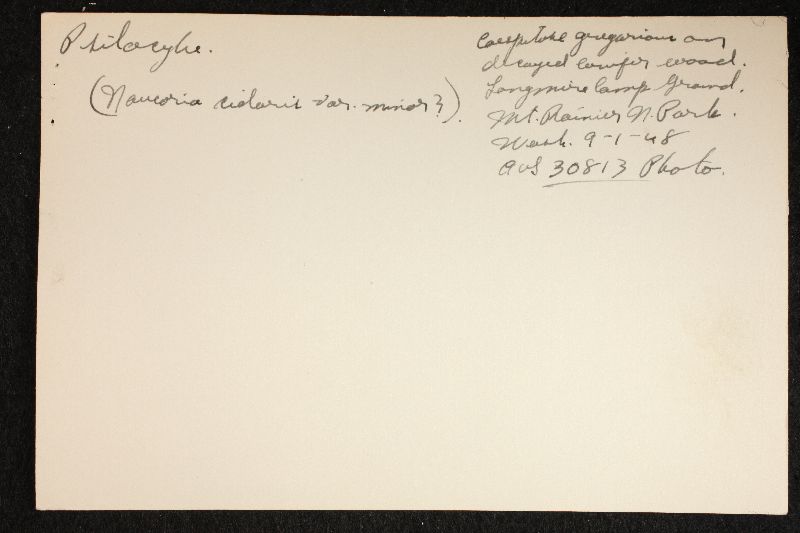 Psilocybe.
(Naucoria cidaris var. minor?).
Caespitose gregarious on
decayed conifer wood.
Longmire Camp Ground.
Mt. Rainier N. Park.
Wash. 9-1-48
AHS 30813 Photo.